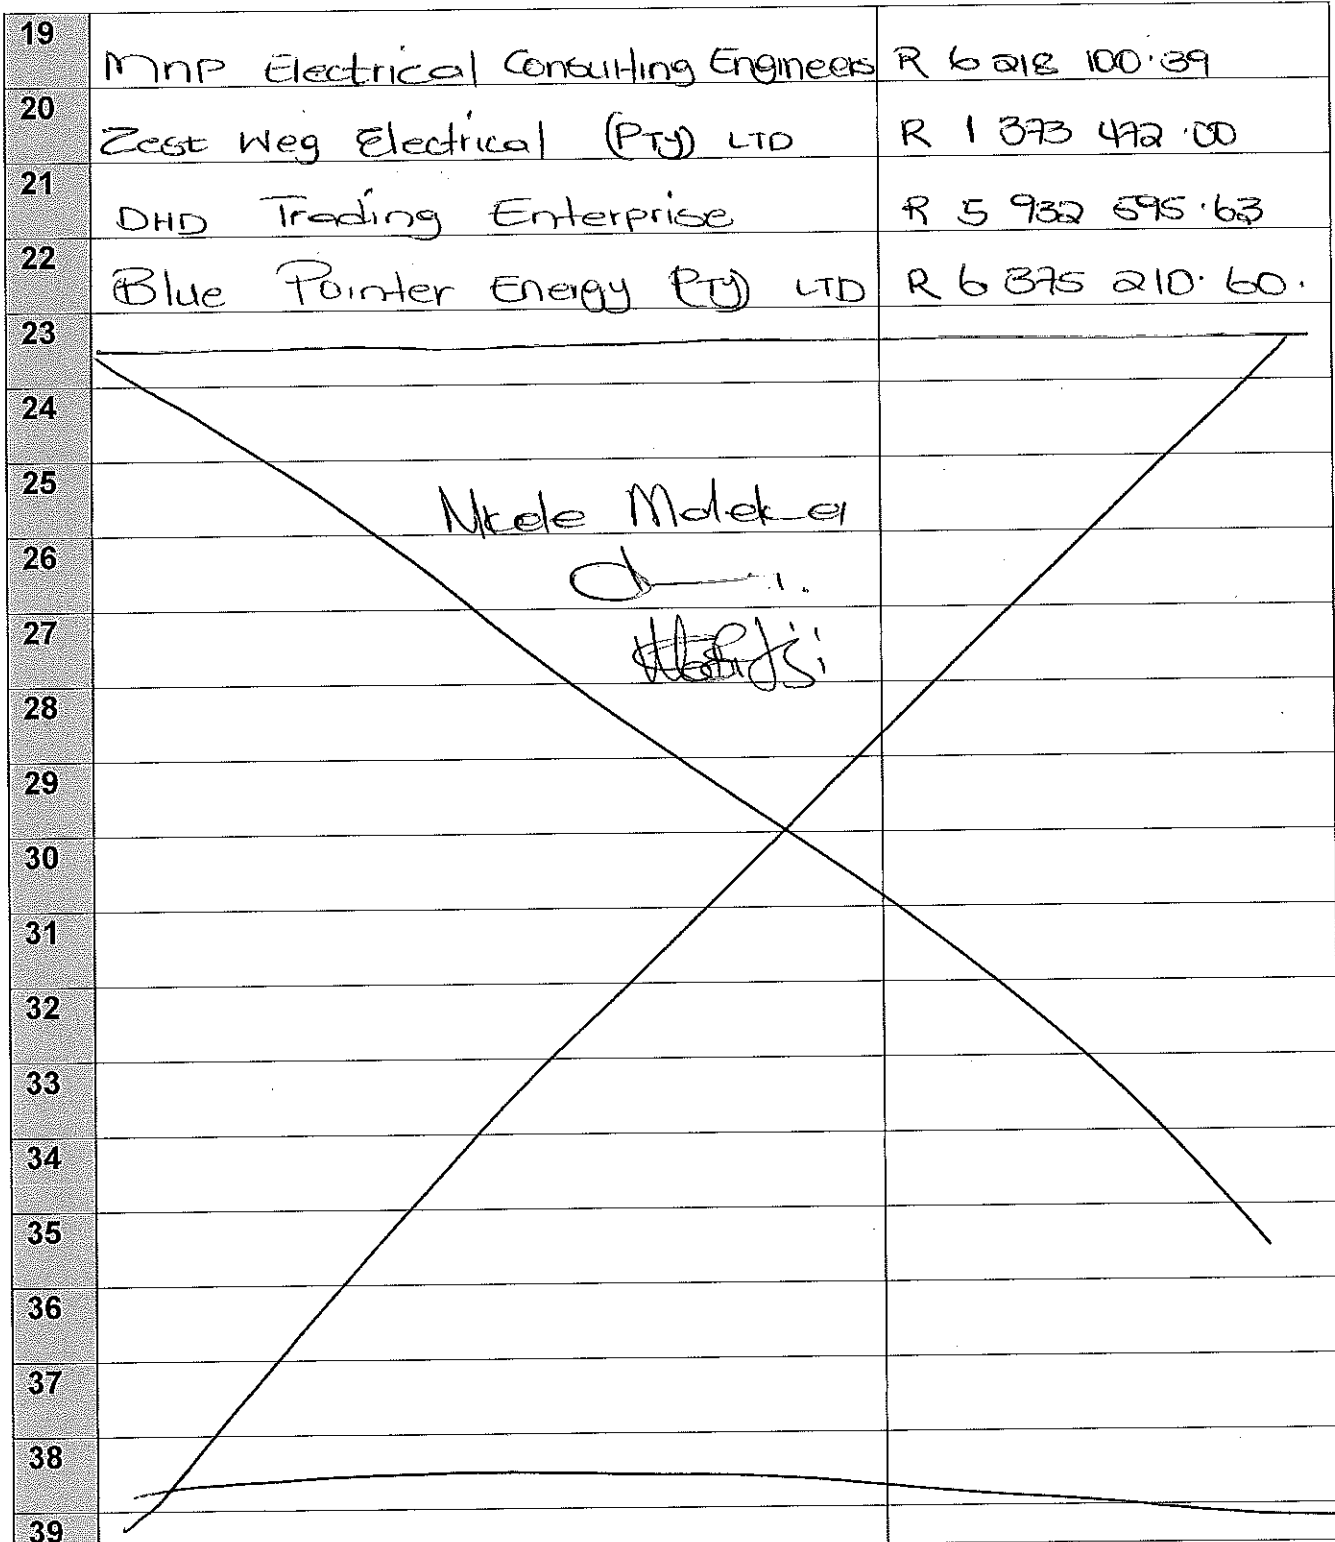 19
MnP Electrical Consulting Engineers R 6 218 100.39
20
Zest Weg Electrical (PTY) LTD R 1 373 472.00
21
DHD Trading Enterprise R 5 932 595.63
22
Blue Pointer Energy (PTY) LTD R 6 375 210.60.
23
24
25
Moleka
26
27
28
29
30
31
32
33
34
35
36
37
38
39